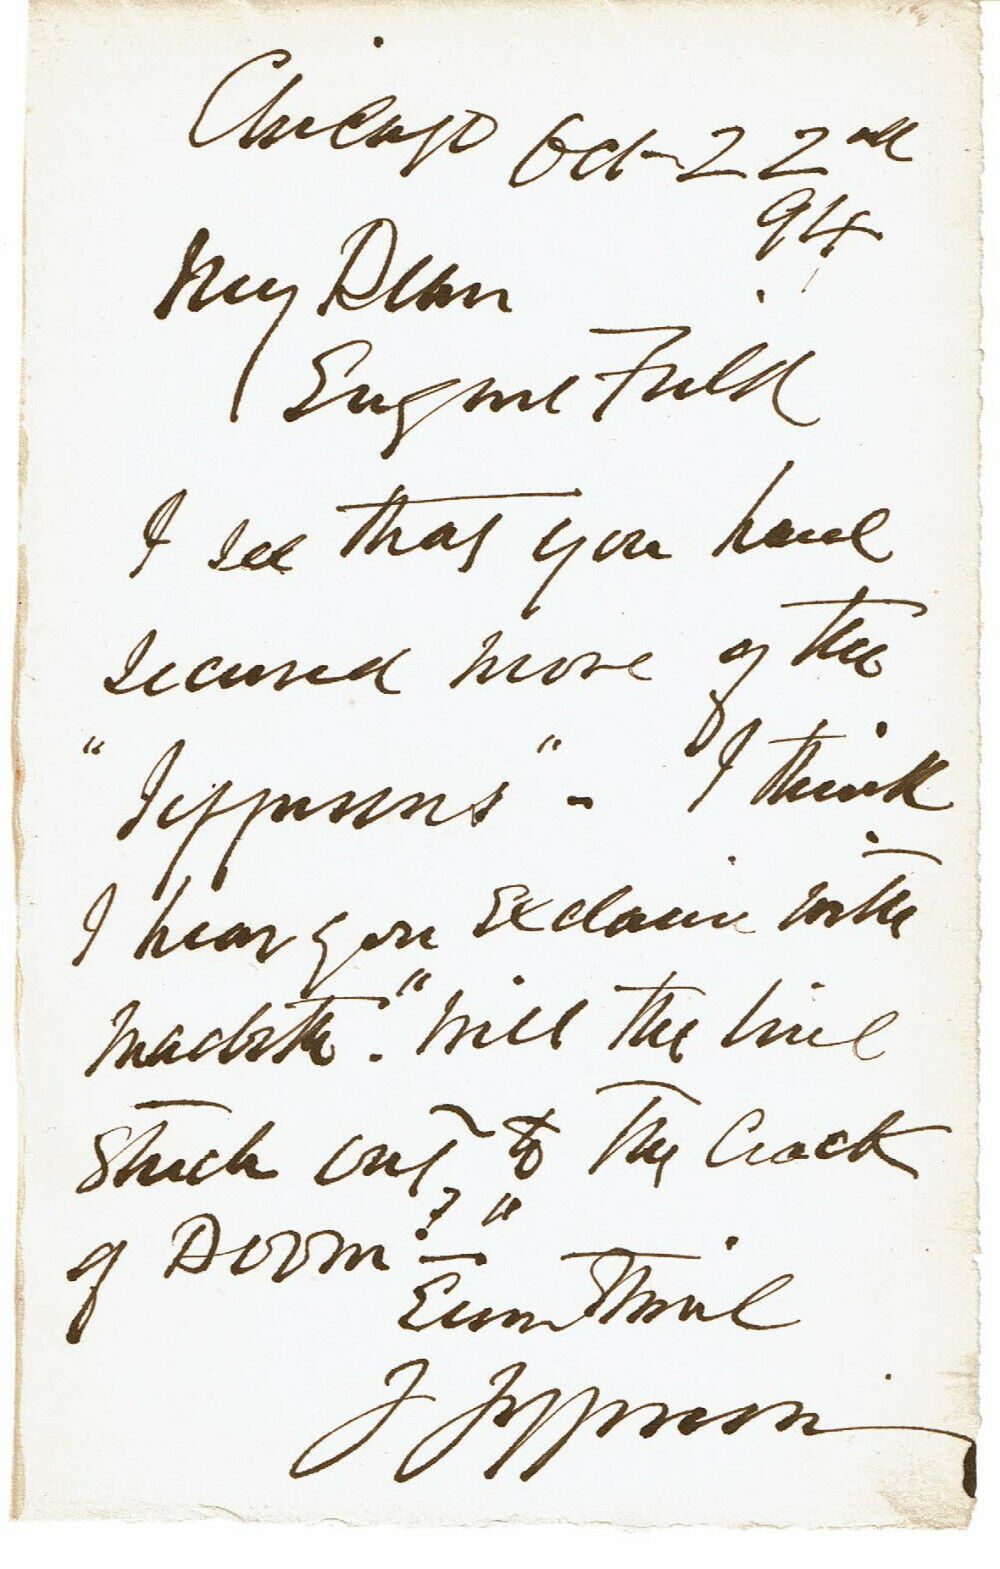 Chicago Oct-22nd
94
My Dear
Eugene Field
I see that you have
secured more of the
"Jeffersons" - I think
I hear you Exclaim with
Macbeth. "Will the line
Stretch out to the Crack
of Doom?"
Ever Thine
J Jefferson